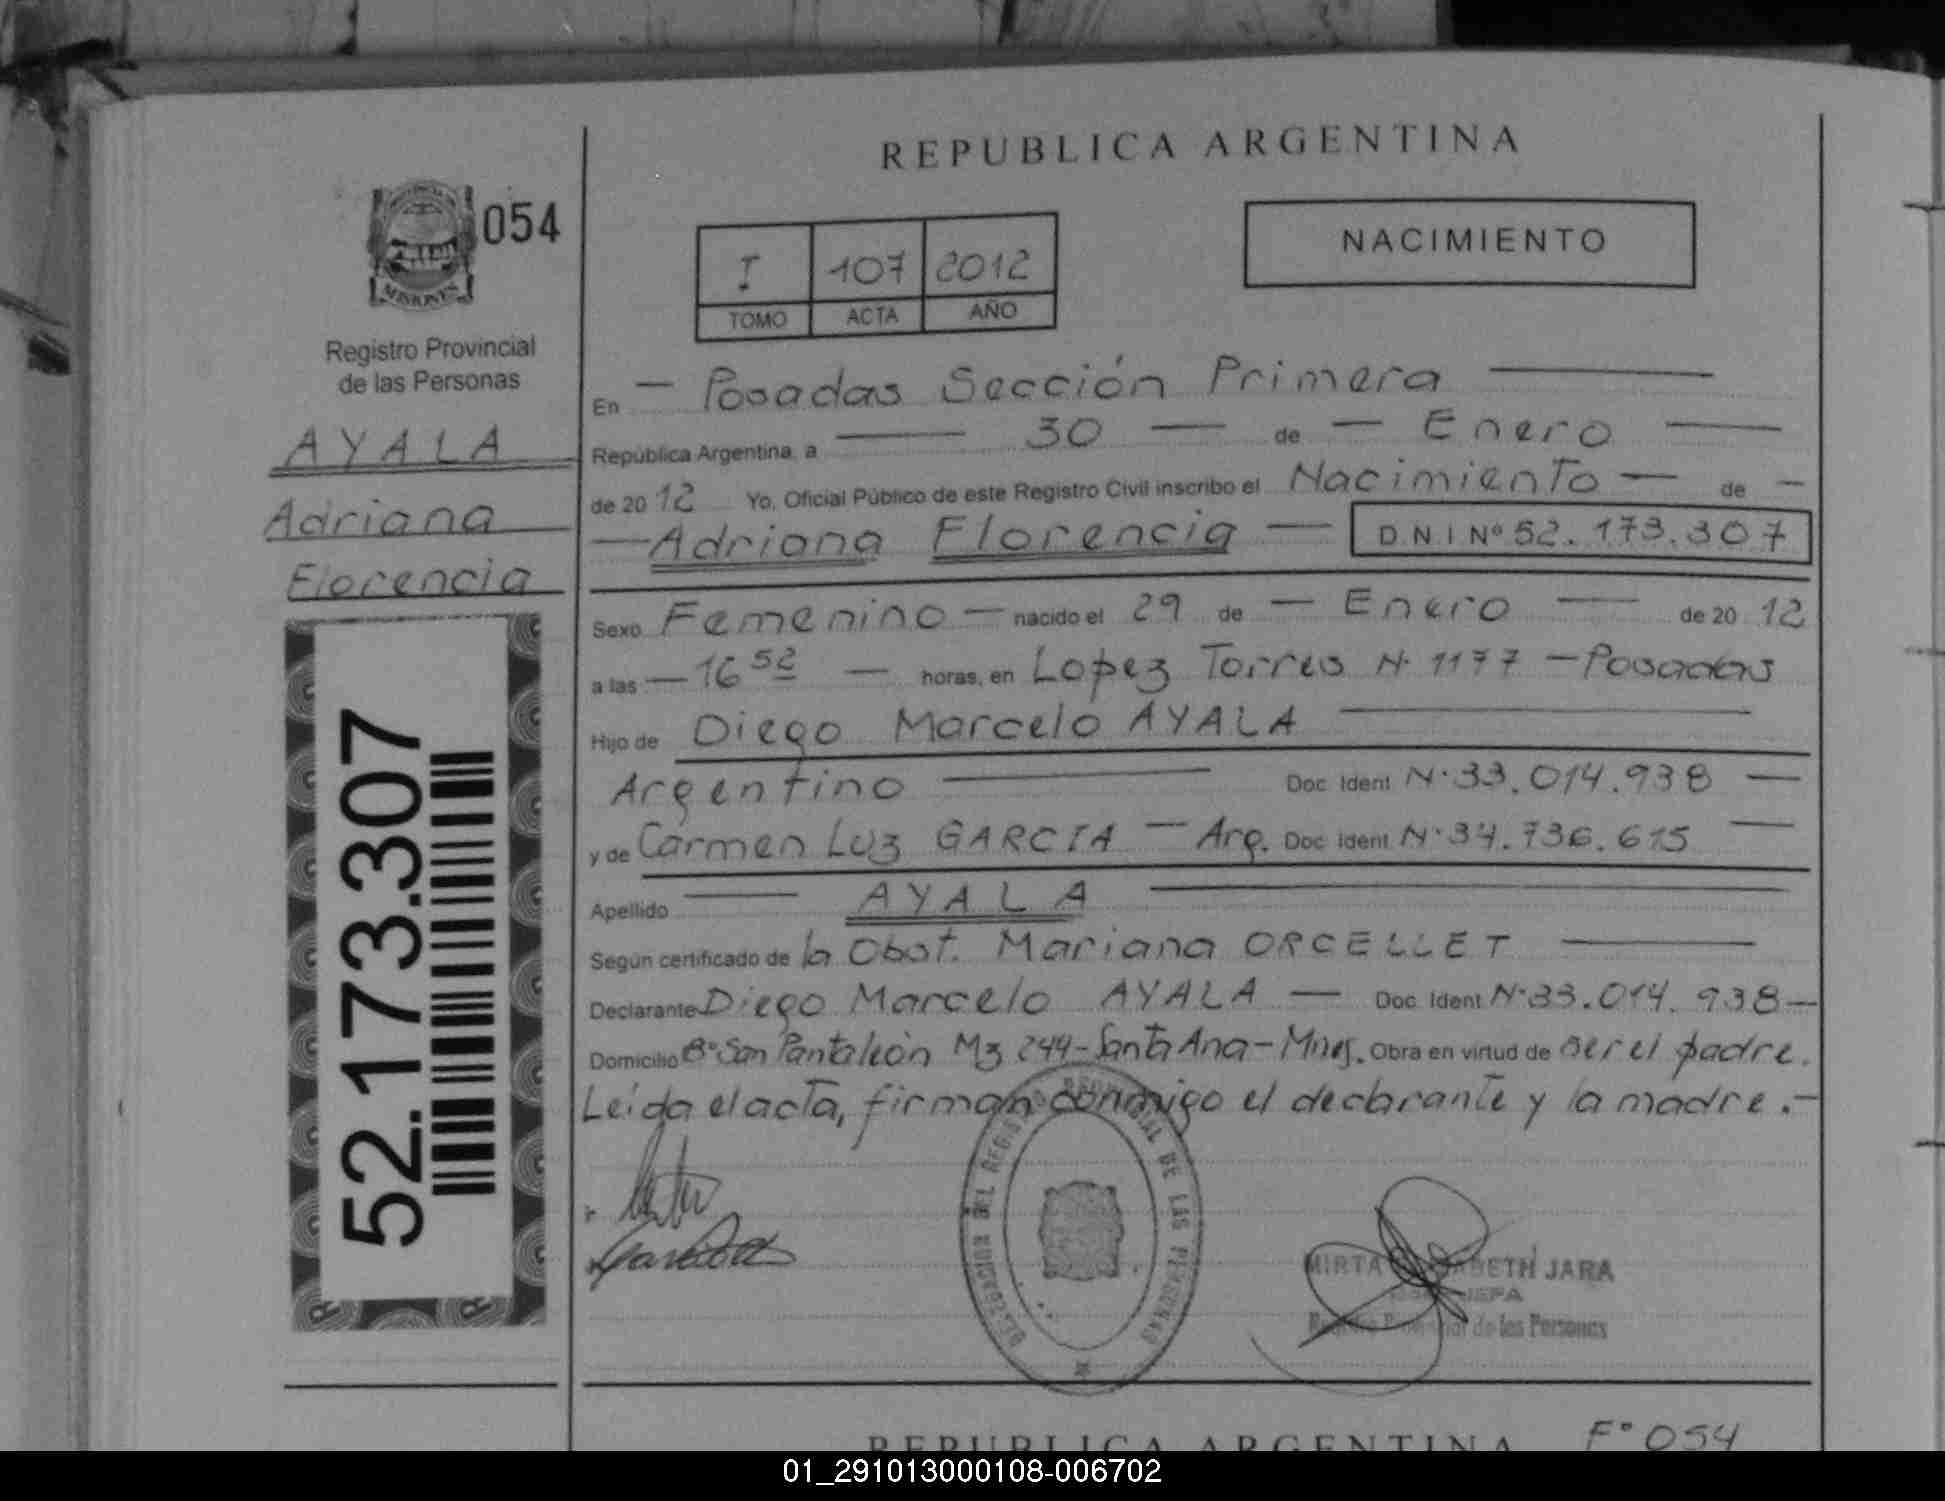 REPUBLICA ARGENTINA
PROVINCIA
MISIONES
054
NACIMIENTO
I 107 2012
TOMO ACTA AÑO
Registro Provincial
de las Personas
AYALA
Adriana
Florencia
52.173.307
En — Posadas Sección Primera —
República Argentina, a — 30 — de — Enero —
de 2012 Yo, Oficial Público de este Registro Civil inscribo el Nacimiento — de —
— Adriana Florencia — D N I Nº 52.173.307
Sexo Femenino — nacido el 29 de — Enero — de 2012
a las — 16 52 — horas, en Lopez Torres N· 1177 — Posadas
Hijo de Diego Marcelo AYALA —
Argentino — Doc. Ident. N·33.014.938 —
y de Carmen Luz GARCIA — Arg. Doc. Ident. N·34.736.615 —
Apellido — AYALA —
Según certificado de la Obst. Mariana ORCELLET —
Declarante Diego Marcelo AYALA — Doc. Ident. N·33.014.938 —
Domicilio Bº San Pantaleón Mz 244 - Santa Ana - Mnes. Obra en virtud de ser el padre.
Leída el acta, firman conmigo el declarante y la madre.-
DEL REGISTRO DE LAS PERSONAS
MIRTA JARA
JEFA
Registro Provincial de las Personas
REPUBLICA ARGENTINA Fº 054
01_291013000108-006702